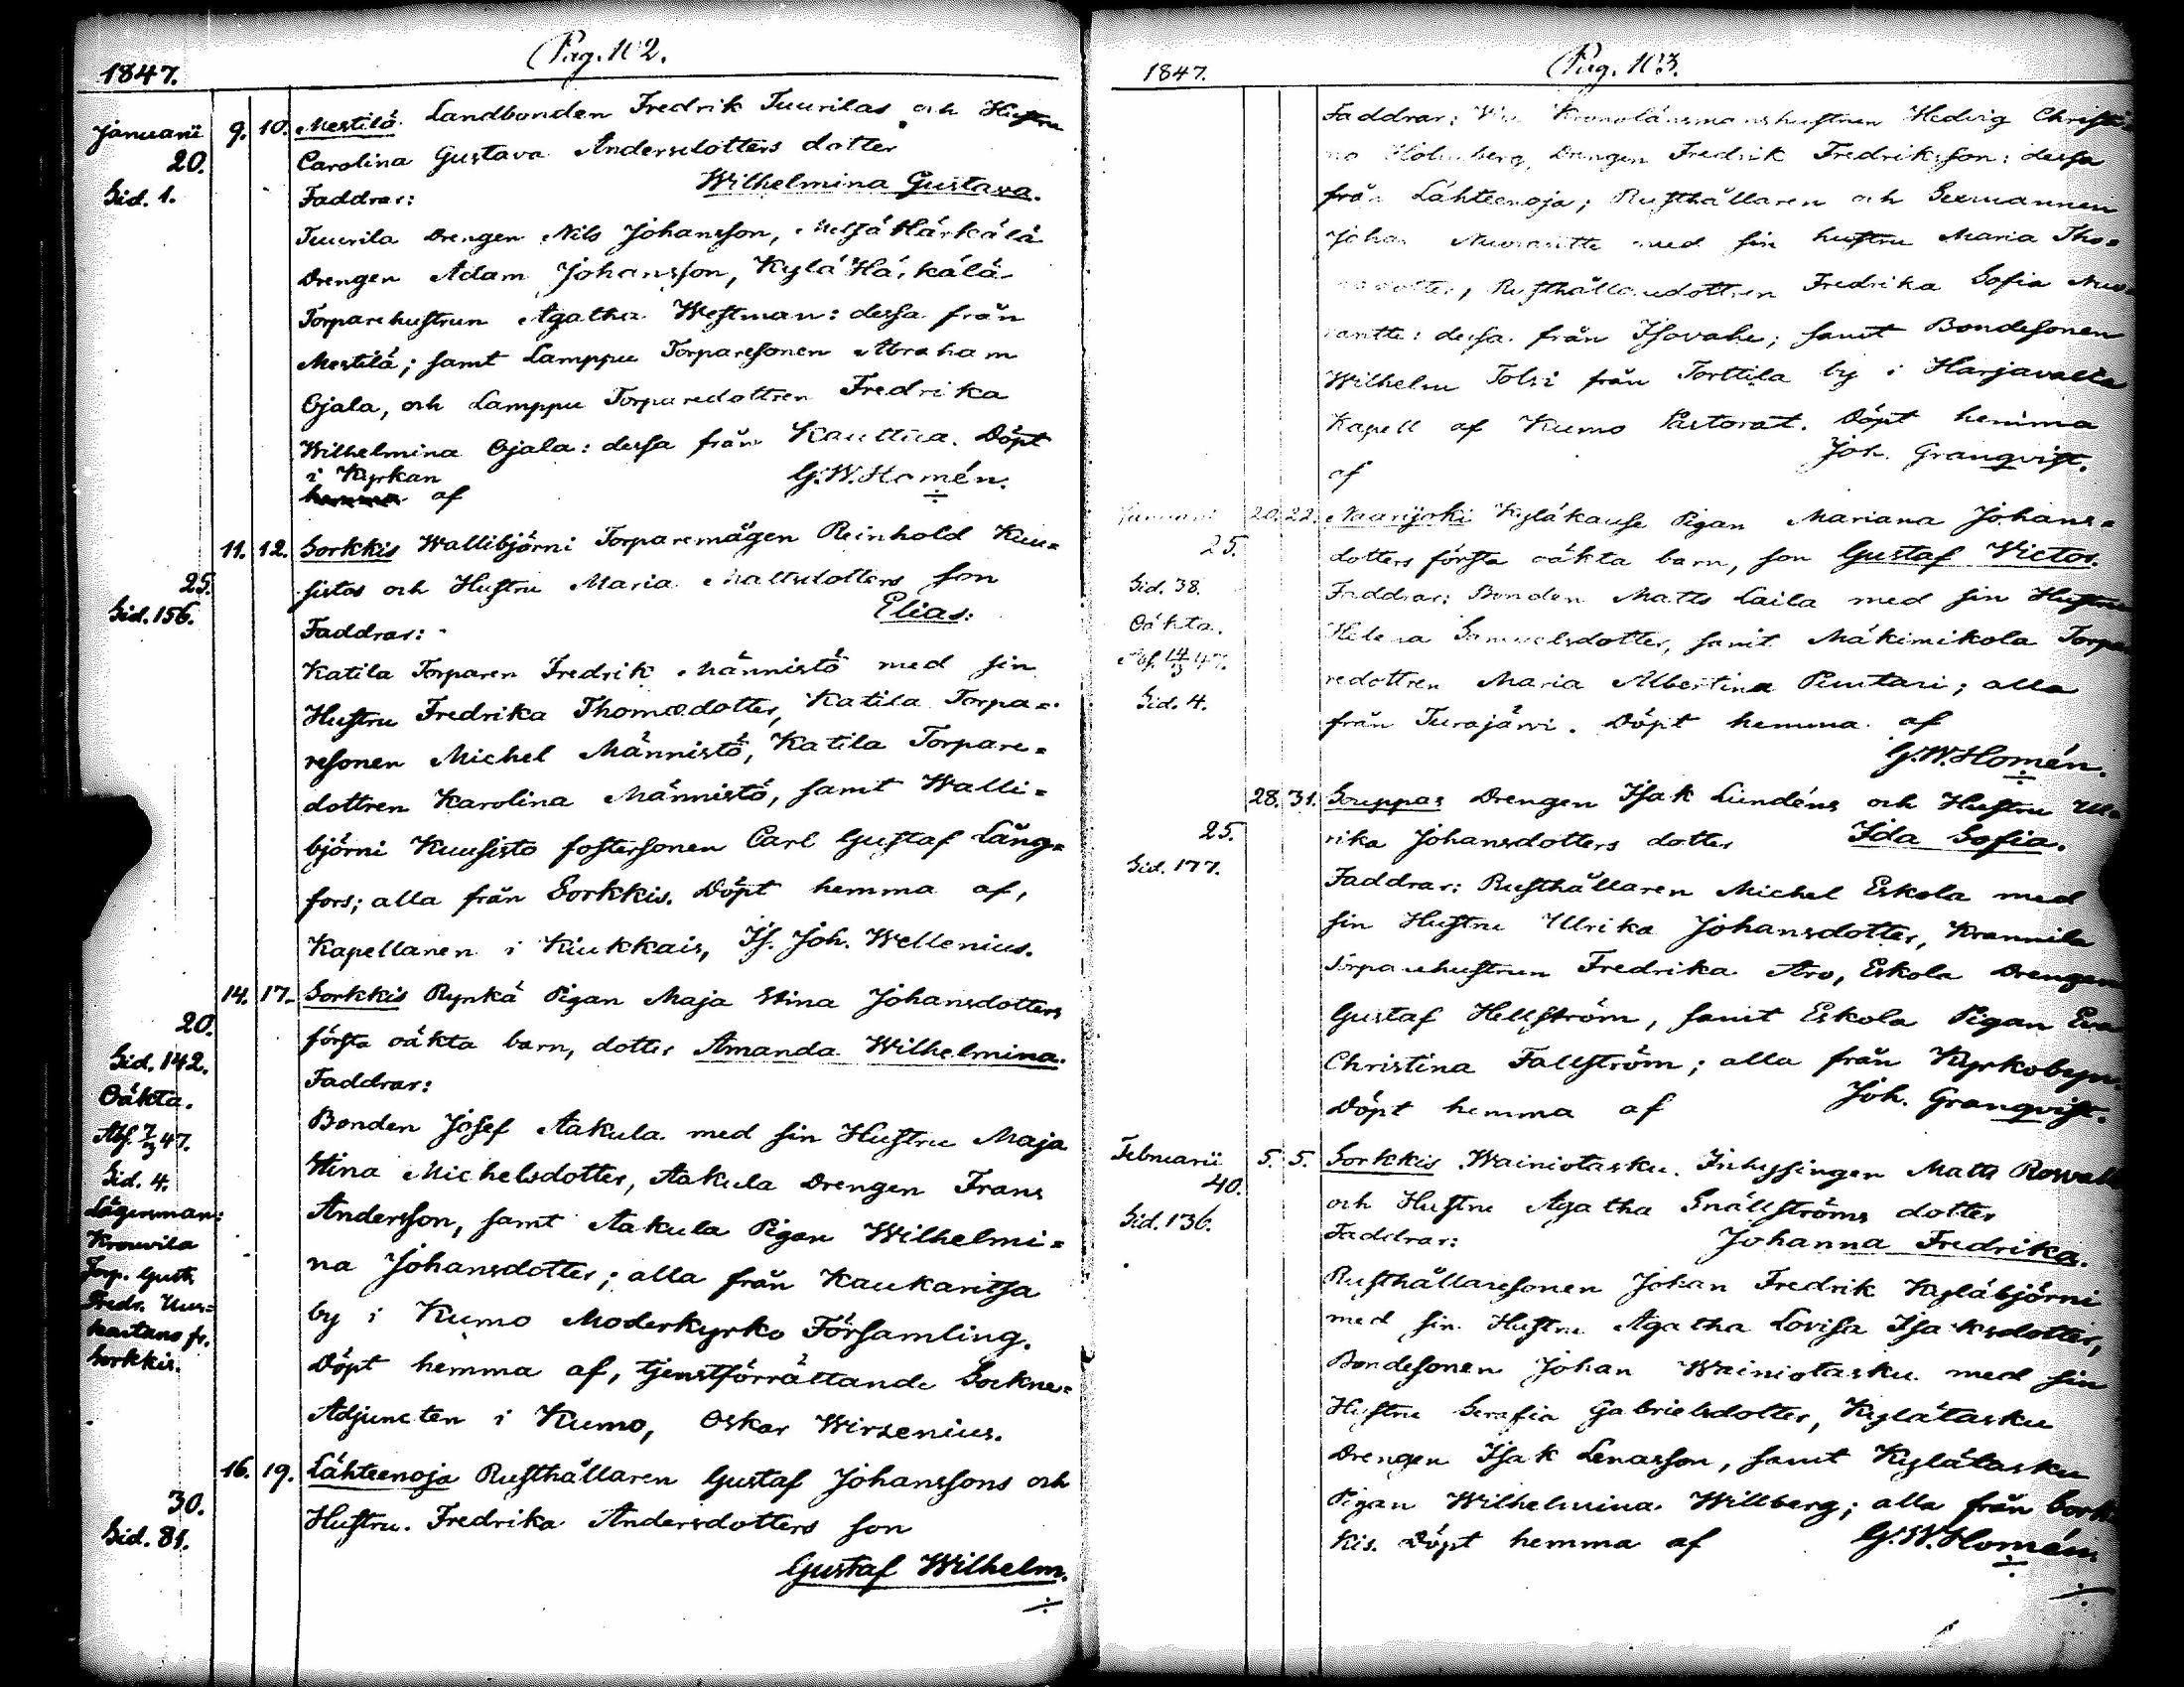 Pag. 102.
1847.
Januarii 9. 10. Mestilä Landbonden Fredrik Tuurilas och Hustru
20. Carolina Gustava Andersdotters dotter
Wilhelmina Gustava.
Sid. 1. Faddrar:
Tuurila Drengen Nils Johansson, Härkälä
Drengen Adam Johansson, Kylä Härkälä
Torparehustrun Agatha Westman: dessa från
Mestilä; samt Lamppu Torparesonen Abraham
Ojala, och Lamppu Torparedottren Fredrika
Wilhelmina Ojala: dessa från Kauttua. Döpt
i Kyrkan
hemma af G.W. Homén.
11. 12. Sorkkis Wallibjörni Torparemågen Reinhold Kuu=
25. sistos och Hustru Maria Mattsdotters son
Elias:
Sid. 156. Faddrar:
Katila Torparen Fredrik Männistö med sin
Hustru Fredrika Thomædotter, Katila Torpa=
resonen Michel Männistö, Katila Torpare=
dottren Karolina Männistö, samt Walli=
björni Kuusisto fostersonen Carl Gustaf Lång=
fors; alla från Sorkkis. Döpt hemma af,
Kapellanen i Kiukkais, Is. Joh. Wellenius.
14. 17. Sorkkis Rynkä Pigan Maja Stina Johansdotters
20. första oäkta barn, dotter Amanda Wilhelmina.
Sid. 142. Faddrar:
Oäkta. Bonden Josef Aakula med sin Hustru Maja
Abs. 7/3 47. Stina Michelsdotter, Aakula Drengen Frans
Sid. 4. Andersson, samt Aakula Pigan Wilhelmi=
Lägersman: na Johansdotter; alla från Kaukaritsa
Krouvila by i Kumo Moderkyrko Församling.
Torp. Gust.
Fredr. Uus=
kartano fr. Döpt hemma af, tjenstförrättande Sockne=
Sorkkis. Adjuncten i Kumo, Oskar Wirzenius.
16. 19. Lähteenoja Rusthållaren Gustaf Johanssons och
30. Hustru Fredrika Andersdotters son
Sid. 81. Gustaf Wilhelm.
Pag. 103.
1847.
Faddrar: Kronolänsmanshustrun Hedvig Christi=
na Holmberg, Drengen Fredrik Fredriksson: dessa
från Lähteenoja; Rusthållaren och Sexmannen
Johan med sin hustru Maria Tho=
mædotter, Rusthållaredottren Fredrika Sofia
dessa från Isovahe; samt Bondesonen
Wilhelm Tolsi från Torttila by i Harjavalla
Kapell af Kumo Pastorat. Döpt hemma
af Joh. Granqvist.
Januarii 20. 22. Naarijoki Kyläkause Pigan Mariana Johans=
25. dotters första oäkta barn, son Gustaf Victor.
Sid. 38. Faddrar: Bonden Matts Laila med sin Hustru
Oäkta. Helena Samuelsdotter, samt Mäkimikola Torpa
Abs. 14/3 47. redottren Maria Albertina Penttari; alla
Sid. 4. från Turajärvi. Döpt hemma af
G.W. Homén.
28. 31. Souppas Drengen Isak Lundéns och Hustru Ul=
25. rika Johansdotters dotter Ida Sofia.
Sid. 177. Faddrar: Rusthållaren Michel Eskola med
sin Hustru Ulrika Johansdotter, Krannila
Torparehustrun Fredrika Aro, Eskola Drengen
Gustaf Hellström, samt Eskola Pigan Eva
Christina Fallström; alla från Kyrkobyn.
Döpt hemma af Joh. Granqvist.
Februarii 5. 5. Sorkkis Wainiotasku Inhysingen Matts
40. och Hustru Agatha Snällströms dotter
Sid. 136. Faddrar: Johanna Fredrika.
Rusthållaresonen Johan Fredrik Kyläbjörni
med sin Hustru Agatha Lovisa Isaksdotter,
Bondesonen Johan Wainiotasku med sin
Hustru Serafia Gabrielsdotter, Kylätasku
Drengen Isak Lenasson, samt Kylätasku
Pigan Wilhelmina Willberg; alla från Sork
kis. Döpt hemma af G.W. Homén